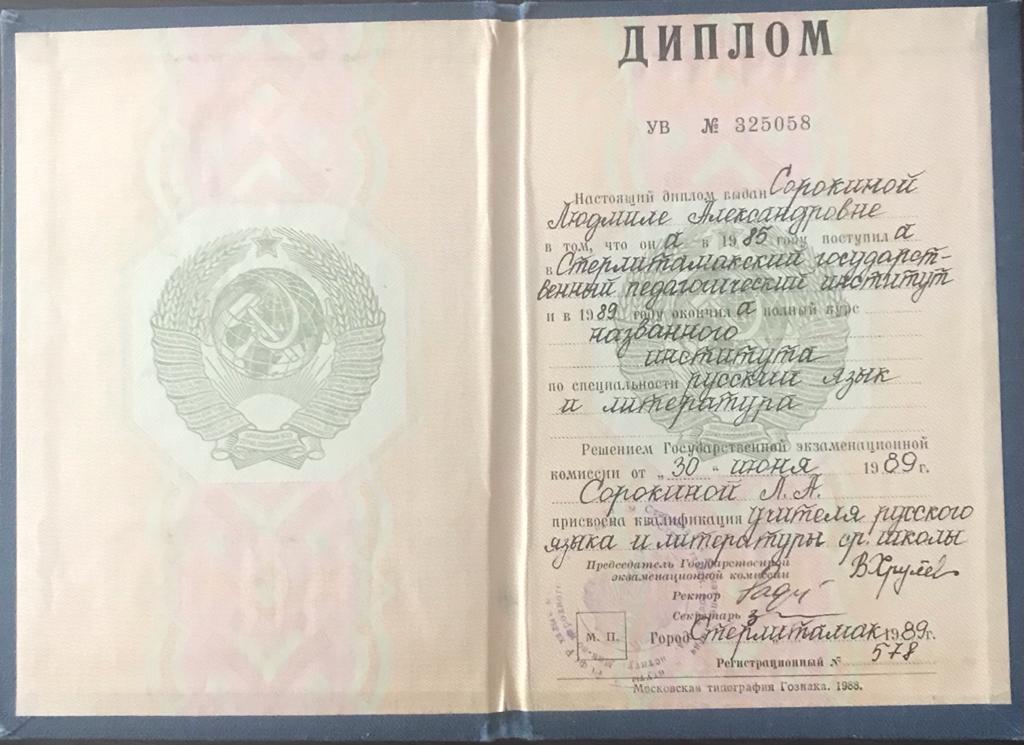 ДИПЛОМ
УВ № 325058
Настоящий диплом выдан Сорокиной
Людмиле Александровне
в том, что он а в 1985 году поступил а
в Стерлитамакский государст-
венный педагогический институт
и в 1989 году окончил а полный курс
названного
института
по специальности русский язык
и литература
Решением Государственной экзаменационной
комиссии от „30" июня 1989 г.
Сорокиной Л. А.
присвоена квалификация учителя русского
языка и литературы ср. школы
Председатель Государственной
экзаменационной комиссии
Ректор
Секретарь
М. П. Город Стерлитамак 1989 г.
Регистрационный № 578
Московская типография Гознака. 1988.